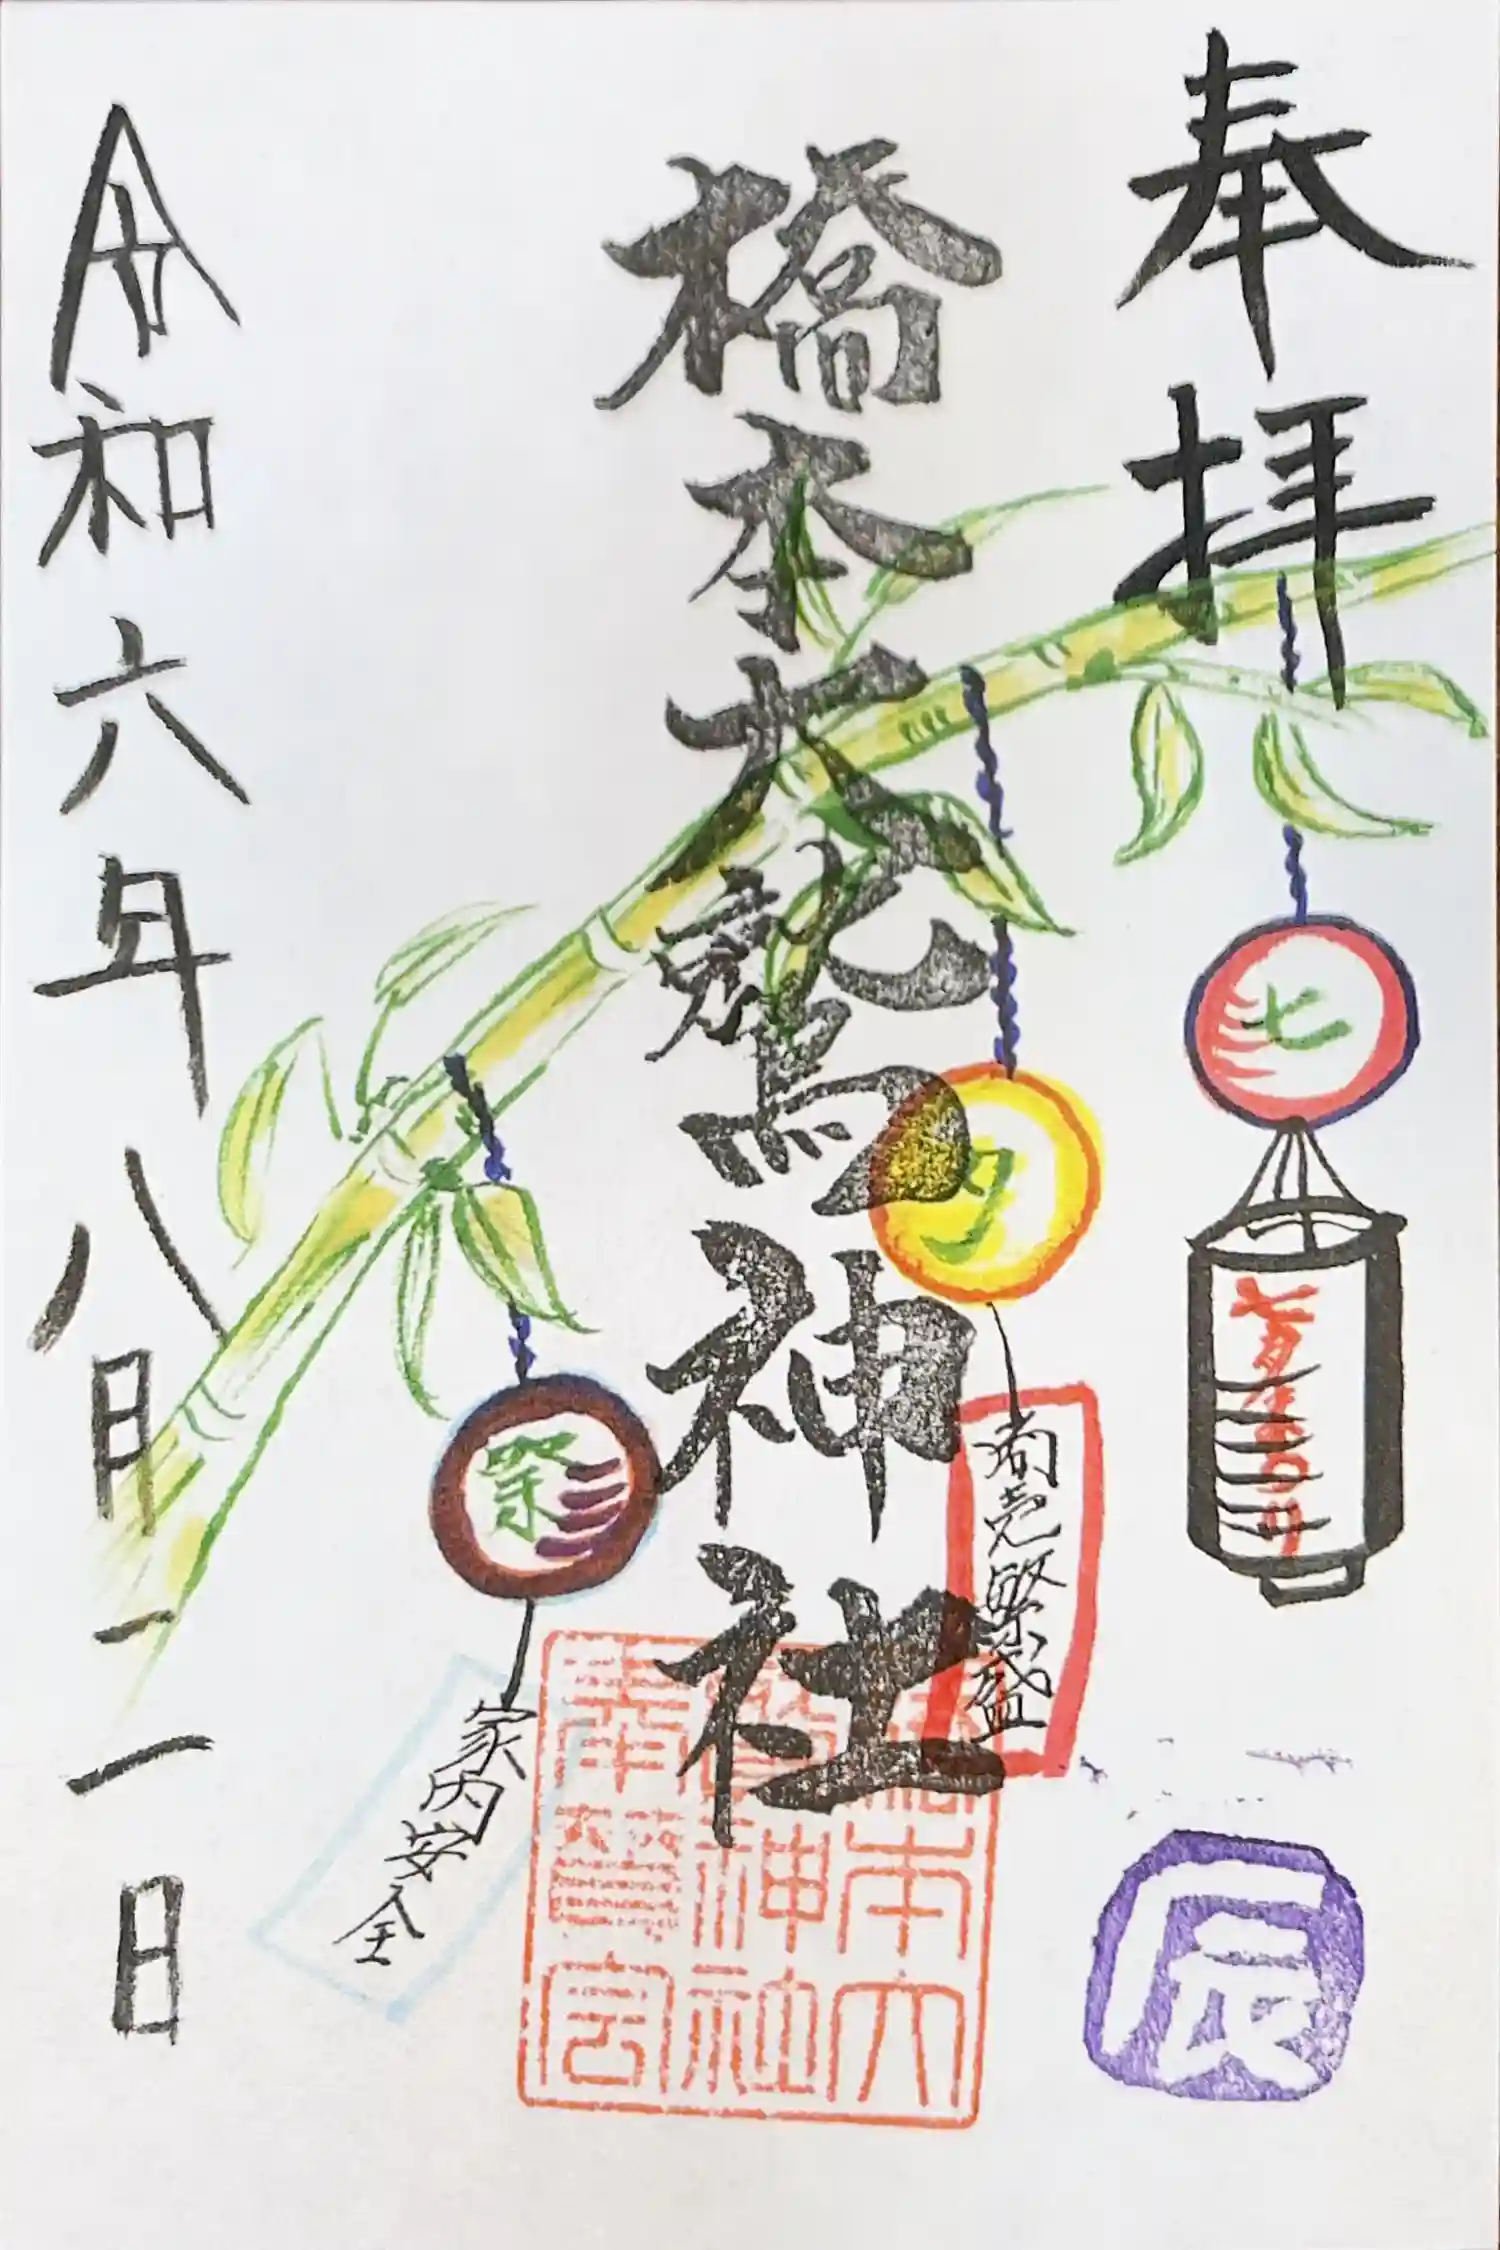 奉拝
橋本大鷲神社
令和六年八月二日
七
夕
祭
商売繁盛
家内安全
橋本大
鷲神社
辰